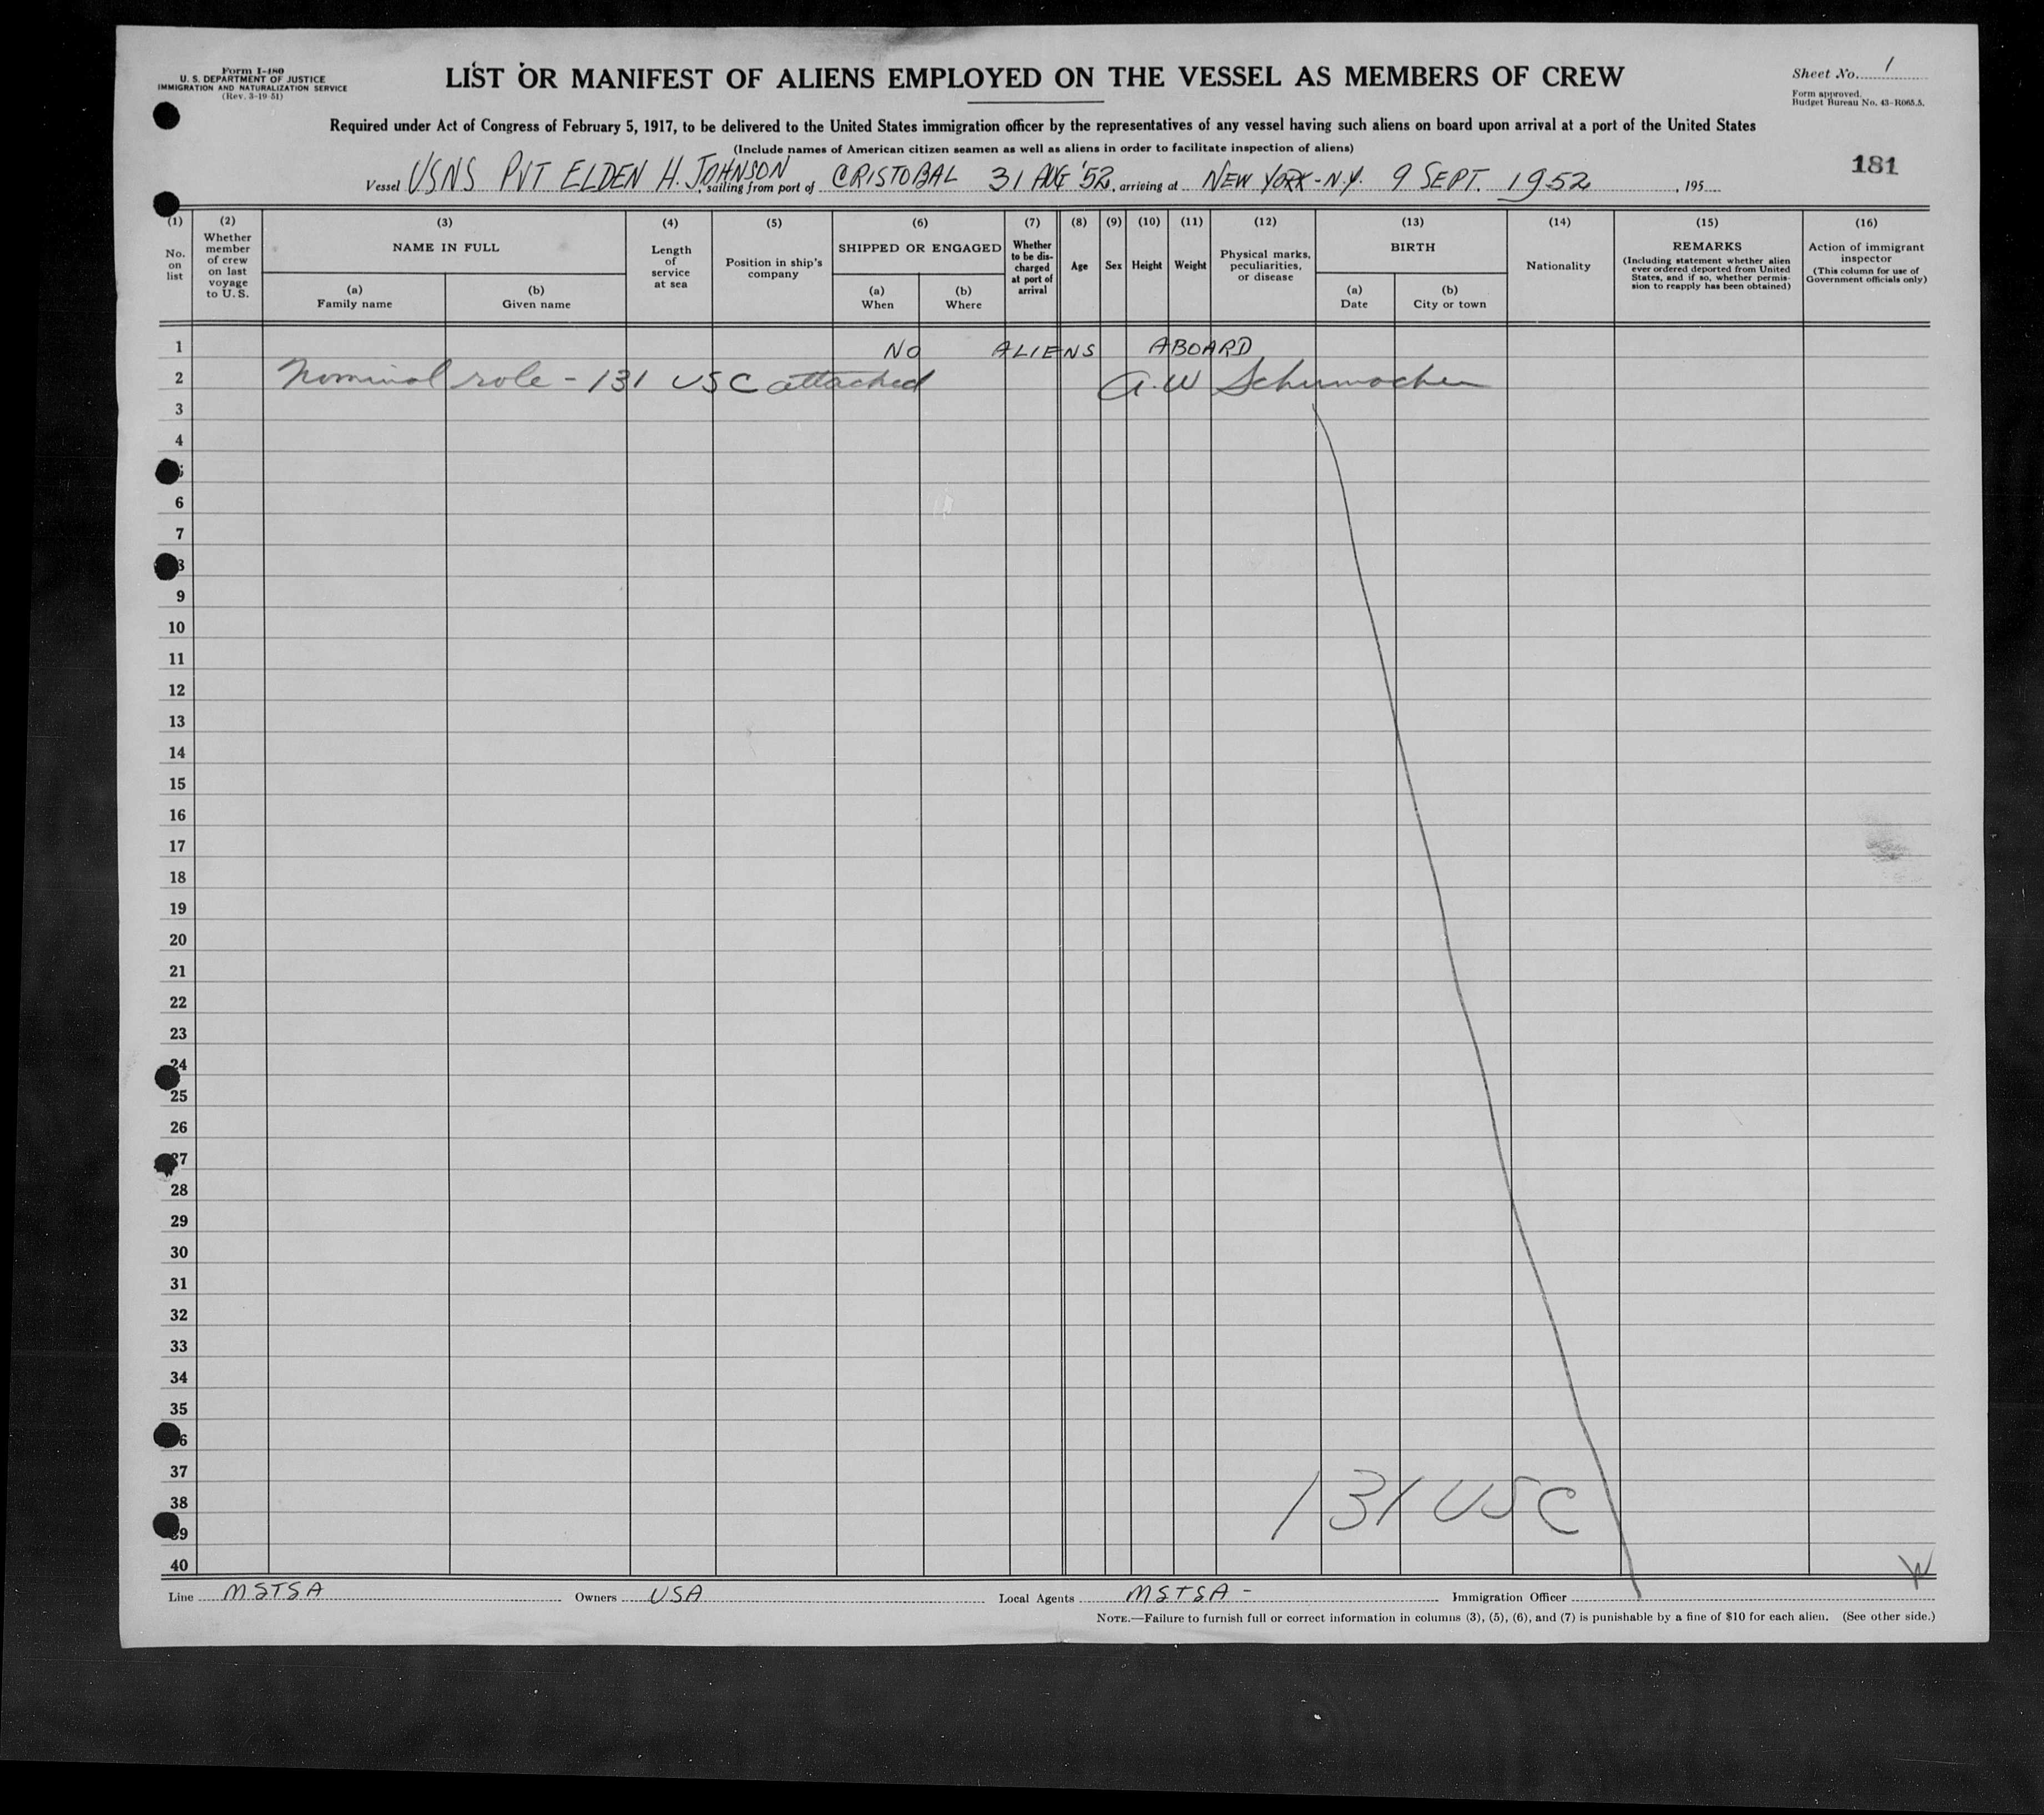 Form I-480
U. S. DEPARTMENT OF JUSTICE
IMMIGRATION AND NATURALIZATION SERVICE
(Rev. 3-19-51)
LIST OR MANIFEST OF ALIENS EMPLOYED ON THE VESSEL AS MEMBERS OF CREW
Sheet No. 1
Form approved.
Budget Bureau No. 43-R065.5.
Required under Act of Congress of February 5, 1917, to be delivered to the United States immigration officer by the representatives of any vessel having such aliens on board upon arrival at a port of the United States
(Include names of American citizen seamen as well as aliens in order to facilitate inspection of aliens)
181
Vessel USNS PVT ELDEN H. JOHNSON, sailing from port of CRISTOBAL 31 AUG '52, arriving at NEW YORK - N.Y. 9 SEPT. 1952, 195
(1) No. on list
(2) Whether member of crew on last voyage to U. S.
(3) NAME IN FULL
(a) Family name
(b) Given name
(4) Length of service at sea
(5) Position in ship's company
(6) SHIPPED OR ENGAGED
(a) When
(b) Where
(7) Whether to be discharged at port of arrival
(8) Age
(9) Sex
(10) Height
(11) Weight
(12) Physical marks, peculiarities, or disease
(13) BIRTH
(a) Date
(b) City or town
(14) Nationality
(15) REMARKS
(Including statement whether alien ever ordered deported from United States, and if so, whether permission to reapply has been obtained)
(16) Action of immigrant inspector
(This column for use of Government officials only)
1 NO ALIENS ABOARD
2 Nominal role - 131 USC attached A. W Schumacher
3
4
6
7
8
9
10
11
12
13
14
15
16
17
18
19
20
21
22
23
24
25
26
27
28
29
30
31
32
33
34
35
36
37
38 131 USC
39
40
Line MSTSA Owners USA Local Agents MSTSA - Immigration Officer
NOTE.—Failure to furnish full or correct information in columns (3), (5), (6), and (7) is punishable by a fine of $10 for each alien. (See other side.)